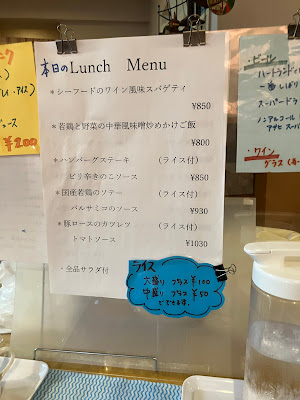 本日のLunch Menu
*シーフードのワイン風味スパゲティ
¥850
*若鶏と野菜の中華風味噌炒めかけご飯
¥800
*ハンバーグステーキ (ライス付)
ピリ辛きのこソース ¥850
*国産若鶏のソテー (ライス付)
バルサミコのソース ¥930
*豚ロースのカツレツ (ライス付)
トマトソース ¥1030
・全品サラダ付
ライス
大盛り プラス ¥100
中盛り プラス ¥50
でできます。
アイス)
ュース
¥200
ビール
ハートランド
一番しぼり
スーパードラ
ノンアルコール
アサヒ スーパー
ワイン
グラス